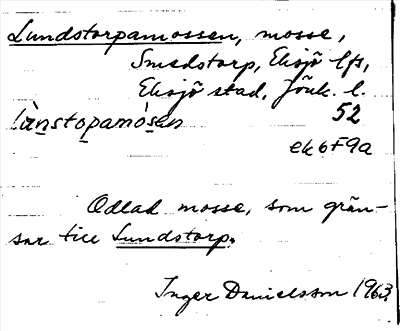 Lundstorpamossen, mosse,
Smedstorp, Eksjö lfs,
Eksjö stad, Jönk. l.
52
lànstopamósen
ek6F9a
Odlad mosse, som grän-
sar till Lundstorp.
Inger Danielsson 1963.